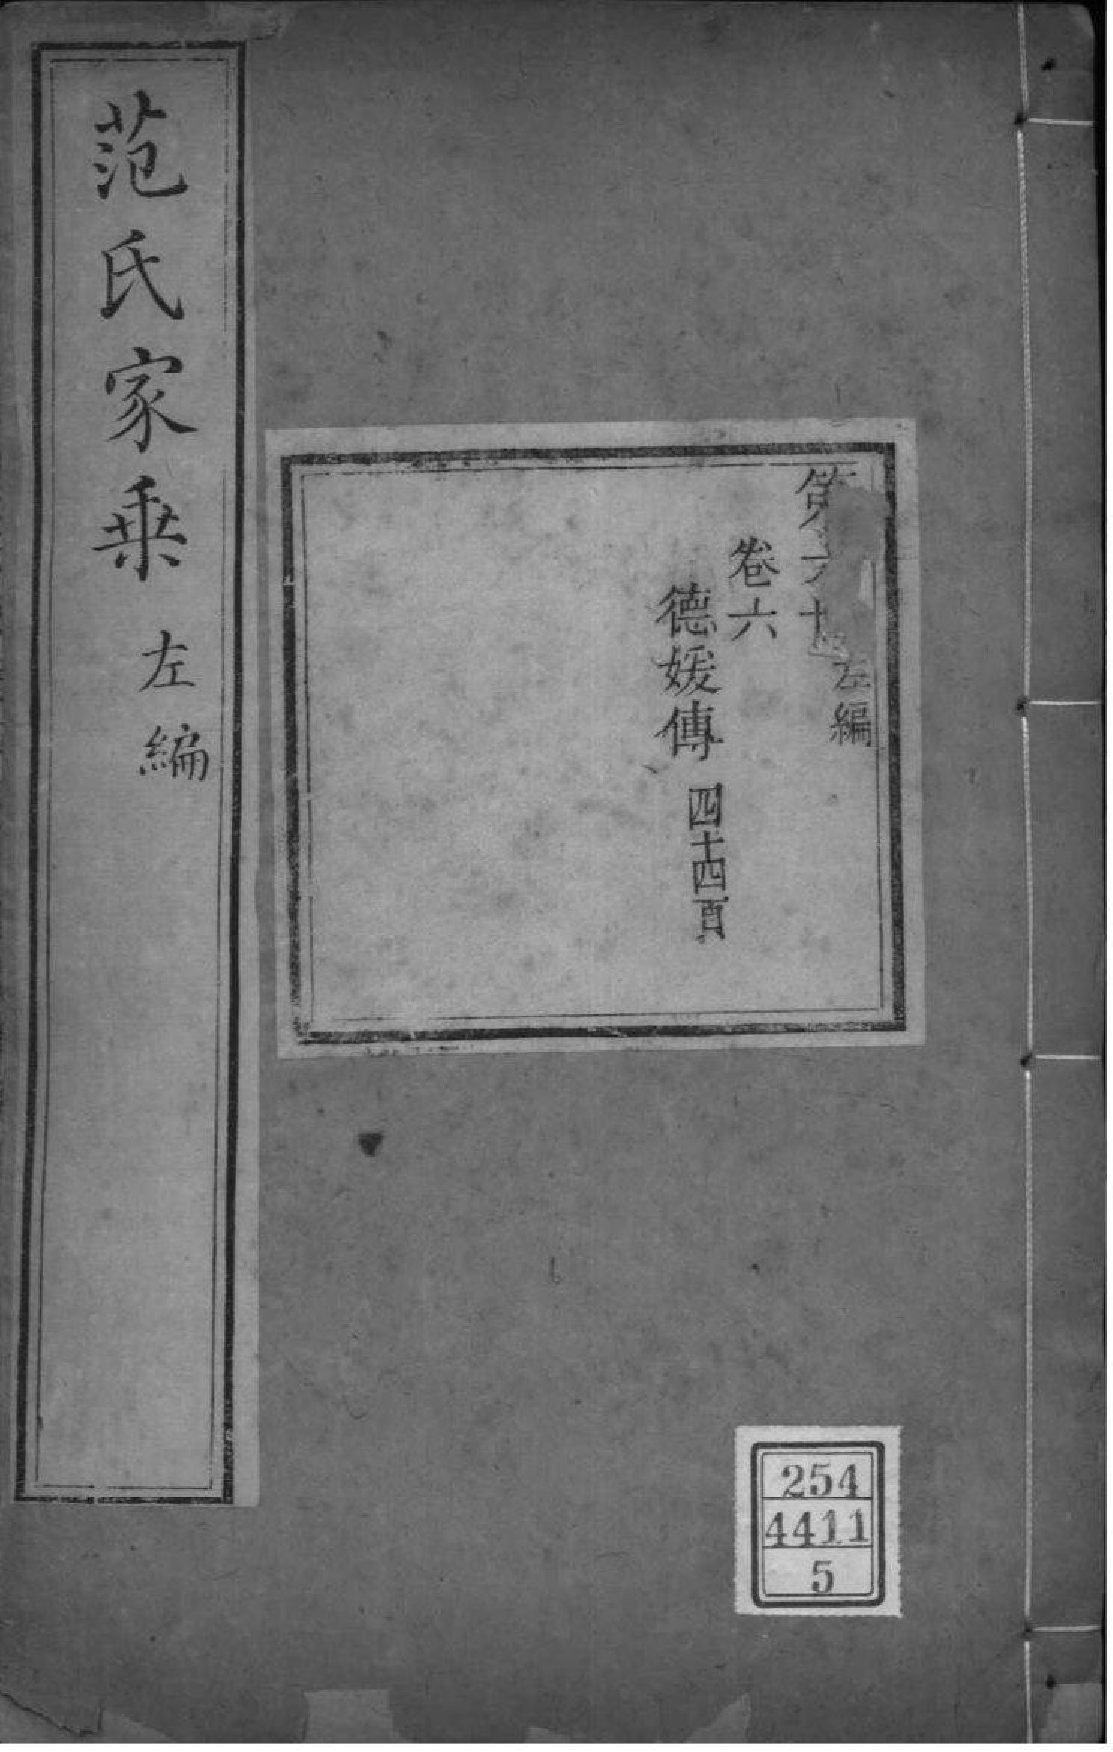 第六十 左編
卷六
德媛傳 四十四頁
范氏家乘 左編
254
4411
5